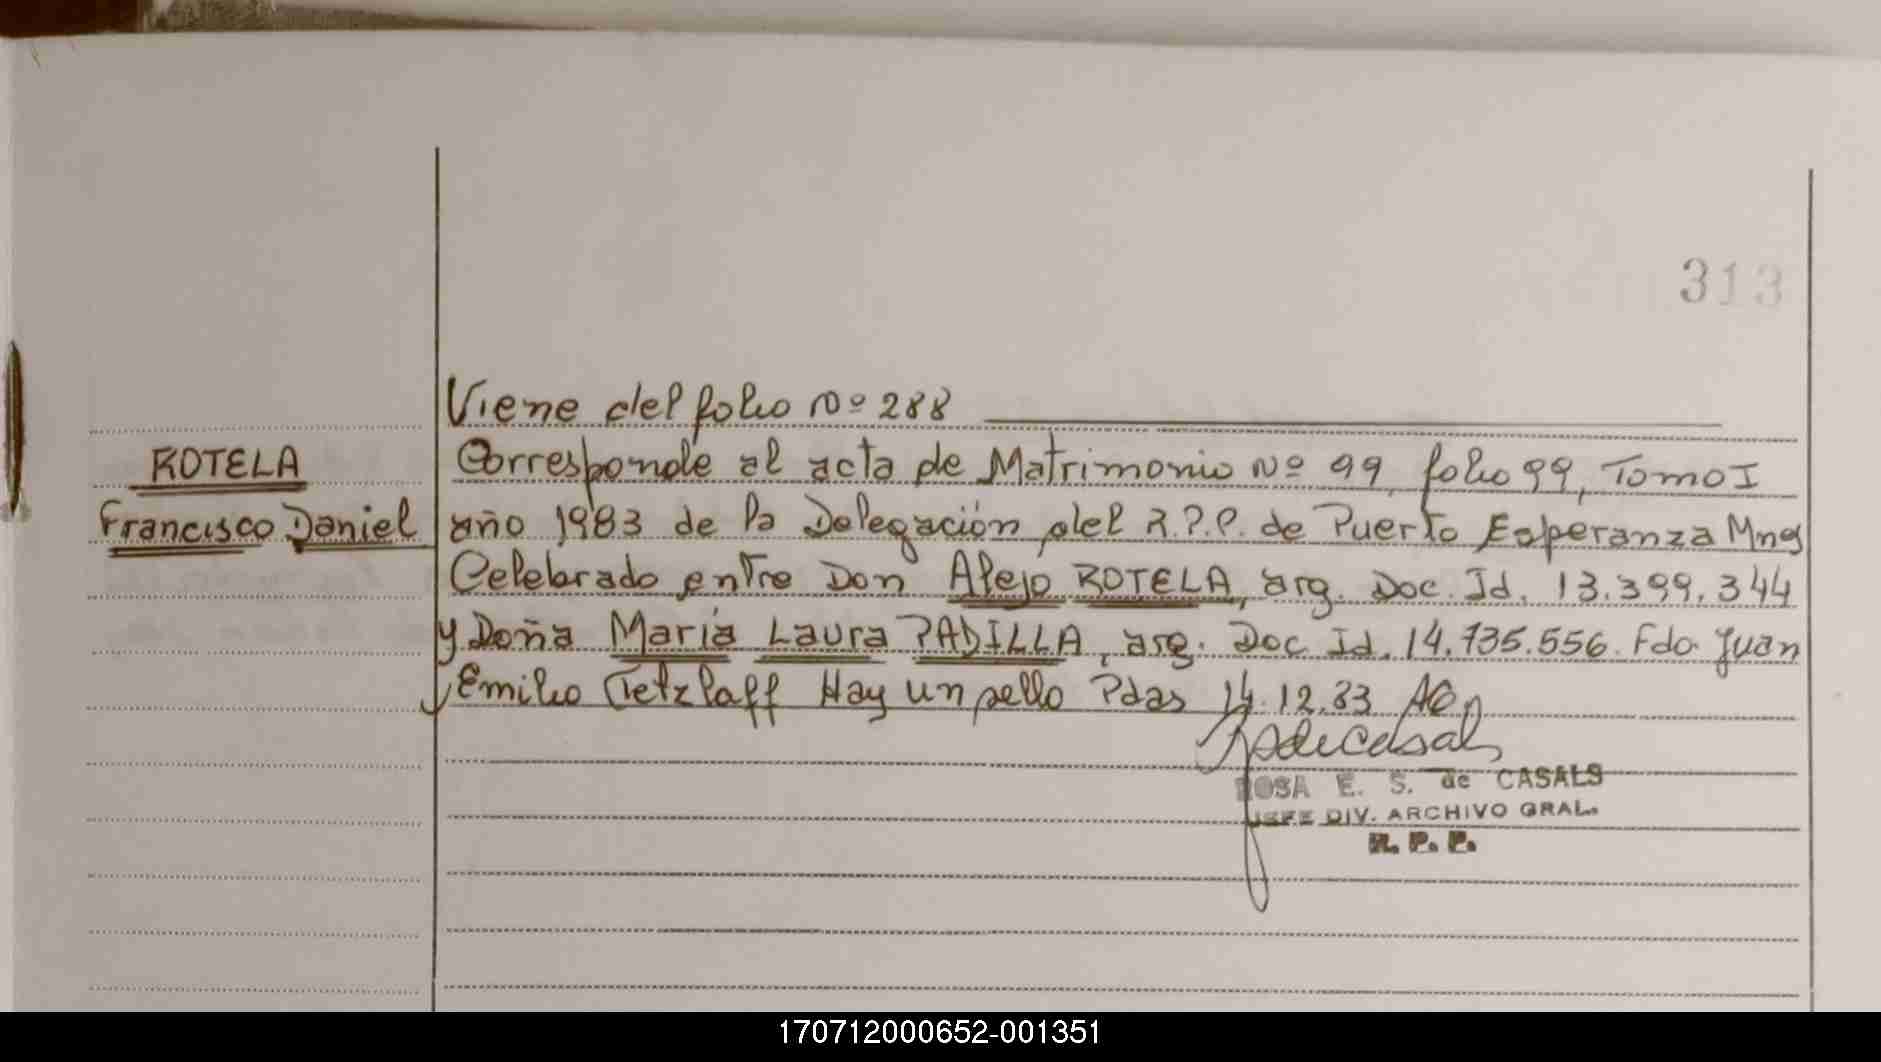 313
Viene del folio Nº 288
ROTELA
Francisco Daniel
Corresponde al acta de Matrimonio Nº 99, folio 99, Tomo I
año 1983 de la Delegación del R.P.P. de Puerto Esperanza Mnes
Celebrado entre Don Alejo ROTELA, arg. Doc. Id. 13.399.344
y Doña María Laura PADILLA, arg. Doc Id. 14.735.556. Fdo. Juan
Emilio Tetzlaff Hay un sello Pdas 14.12.83
ROSA E. S. de CASALS
JEFE DIV. ARCHIVO GRAL.
R. P. P.
170712000652-001351